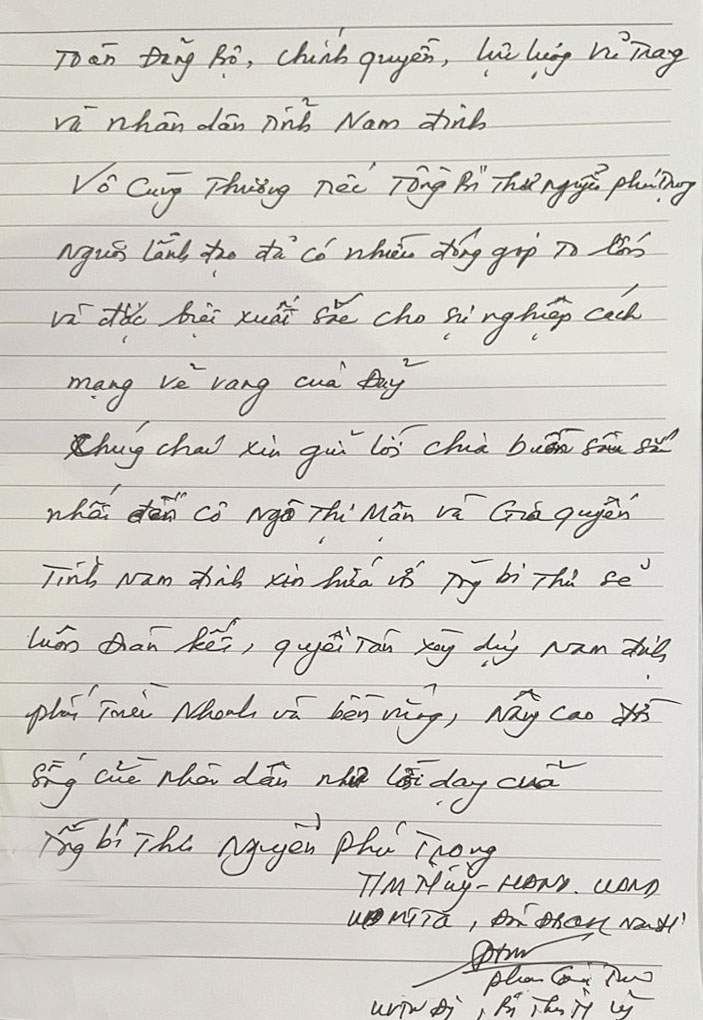 Toàn Đảng Bộ, chính quyền, lực lượng vũ trang
và nhân dân tỉnh Nam định
Vô Cùng Thương tiếc Tổng Bí Thư nguyễn phú trọng
người lãnh đạo đã có nhiều đóng góp to lớn
và đặc biệt xuất sắc cho sự nghiệp cách
mạng vẻ vang của Đảng
Chúng cháu xin gửi lời chia buồn sâu sắc
nhất đến cô Ngô Thị Mận và Gia quyến
Tỉnh Nam định xin hứa với Tổng bí Thư sẽ
luôn đoàn kết, quyết tâm xây dựng Nam định
phát triển Nhanh và bền vững, Nâng cao đời
sống của nhân dân như lời dạy của
Tổng bí Thư Nguyễn Phú Trọng
T/M Tỉnh ủy - HĐND. UBND
UBMTTQ, ĐĐBQH